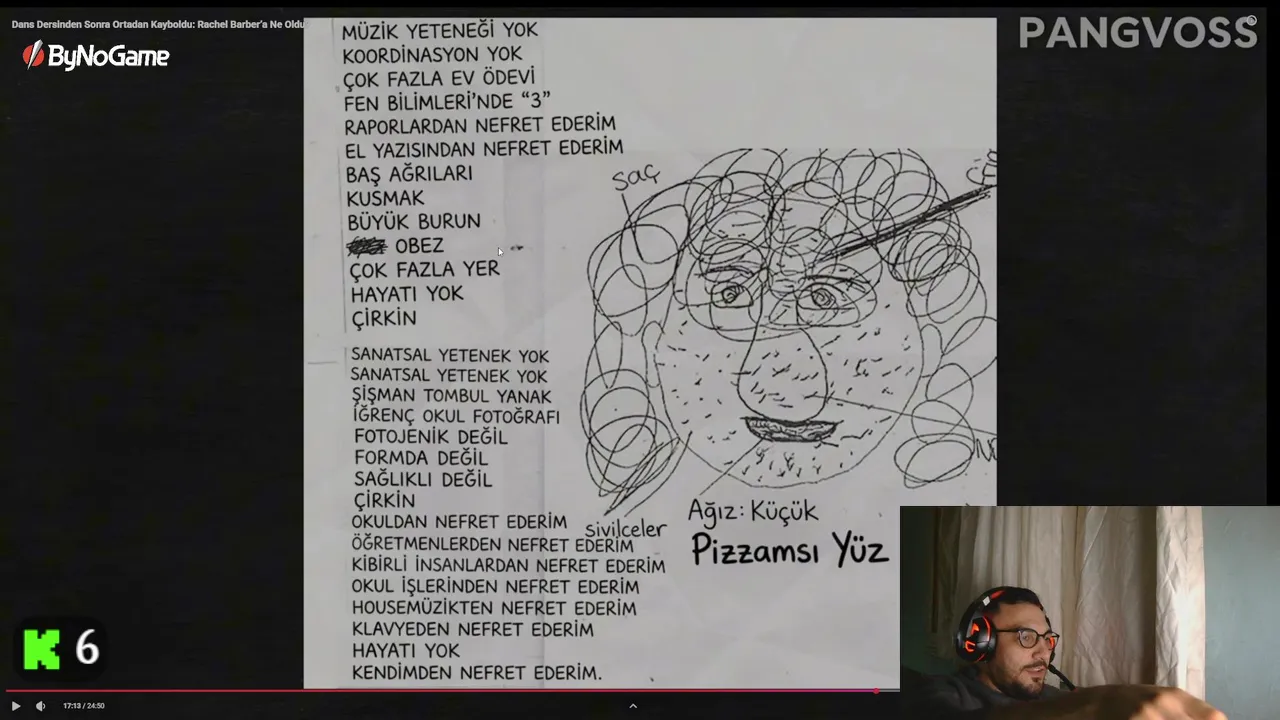 Dans Dersinden Sonra Ortadan Kayboldu: Rachel Barber'a Ne Oldu
ByNoGame
PANGVOSS
MÜZİK YETENEĞİ YOK
KOORDİNASYON YOK
ÇOK FAZLA EV ÖDEVİ
FEN BİLİMLERİ'NDE “3”
RAPORLARDAN NEFRET EDERİM
EL YAZISINDAN NEFRET EDERİM
BAŞ AĞRILARI
KUSMAK
BÜYÜK BURUN
OBEZ
ÇOK FAZLA YER
HAYATI YOK
ÇİRKİN
SANATSAL YETENEK YOK
SANATSAL YETENEK YOK
ŞİŞMAN TOMBUL YANAK
İĞRENÇ OKUL FOTOĞRAFI
FOTOJENİK DEĞİL
FORMDA DEĞİL
SAĞLIKLI DEĞİL
ÇİRKİN
OKULDAN NEFRET EDERİM
ÖĞRETMENLERDEN NEFRET EDERİM
KİBİRLİ İNSANLARDAN NEFRET EDERİM
OKUL İŞLERİNDEN NEFRET EDERİM
HOUSEMÜZİKTEN NEFRET EDERİM
KLAVYEDEN NEFRET EDERİM
HAYATI YOK
KENDİMDEN NEFRET EDERİM.
saç
sivilceler
Ağız: Küçük
Pizzamsı Yüz
K 6
17:13 / 24:50